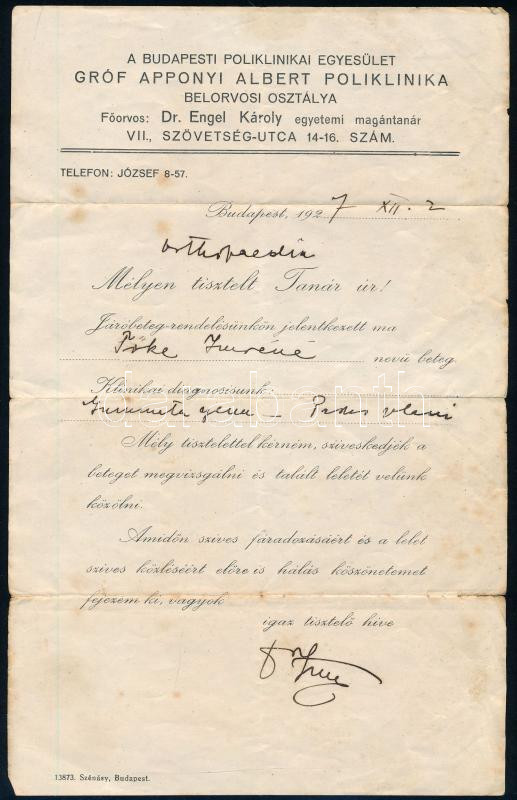 A BUDAPESTI POLIKLINIKAI EGYESÜLET
GRÓF APPONYI ALBERT POLIKLINIKA
BELORVOSI OSZTÁLYA
Főorvos: Dr. Engel Károly egyetemi magántanár
VII., SZÖVETSÉG-UTCA 14-16. SZÁM.
TELEFON: JÓZSEF 8-57.
Budapest, 1927 XII. 2
orthopaedia
Mélyen tisztelt Tanár úr!
Járóbeteg-rendelésünkön jelentkezett ma
Tőke Imréné nevü beteg.
Klinikai diagnosisunk:
genu – Pedes plani
Mély tisztelettel kérném, sziveskedjék a
beteget megvizsgálni és talált leletét velünk
közölni.
Amidőn szives fáradozásáért és a lelet
szives közléséért előre is hálás köszönetemet
fejezem ki, vagyok
igaz tisztelő hive
Dr
13873. Szénásy, Budapest.
darabanth